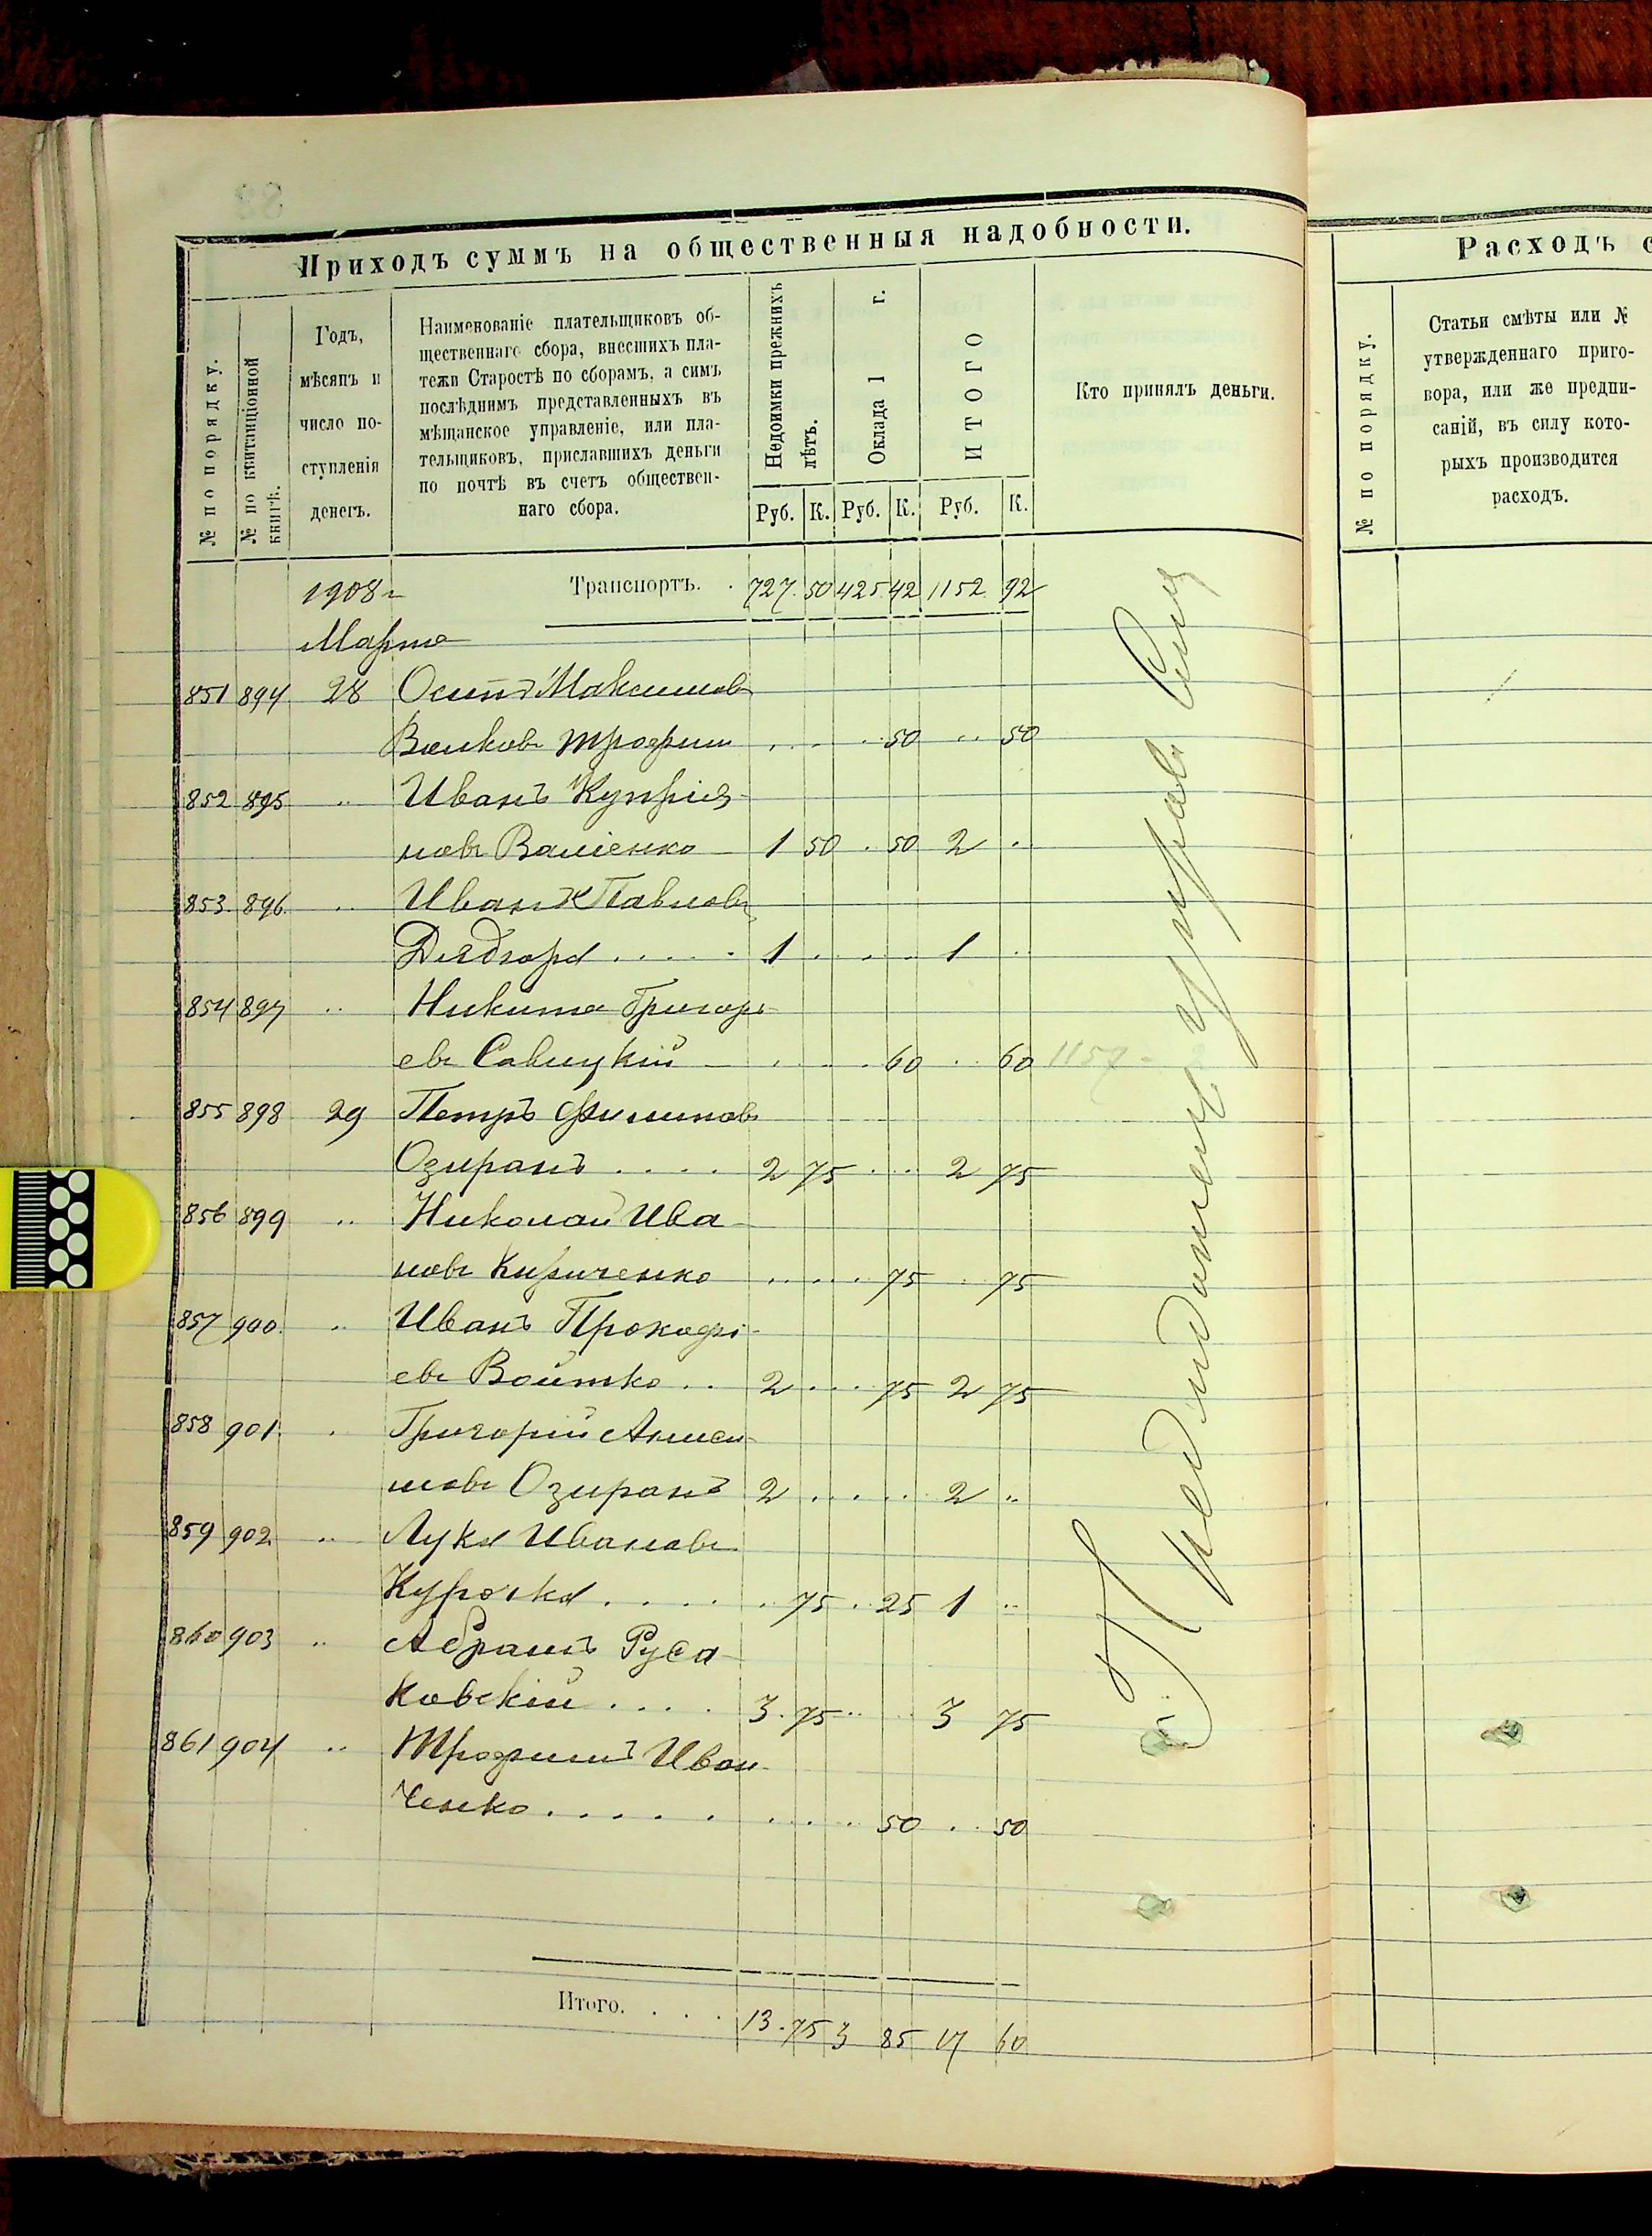 Приходъ суммъ на общественныя надобности.
№ по порядку.
№ по квитанціонной
книгѣ.
Годъ,
мѣсяцъ и
число по-
ступленія
денегъ.
Наименованіе плательщиковъ об-
щественнаго сбора, внесшихъ пла-
тежи Старостѣ по сборамъ, а симъ
послѣднимъ представленныхъ въ
мѣщанское управленіе, или пла-
тельщиковъ, приславшихъ деньги
по почтѣ въ счетъ обществен-
наго сбора.
Недоимки прежнихъ
лѣтъ.
Оклада 1 г.
ИТОГО
Руб. К. Руб. К. Руб. К.
Кто принялъ деньги.
1908 г Транспортъ. . 727 50 425 42 1152 92
Марта
851 894 28 Осипъ Максимовъ
Волковъ Трофим . . . . 50 .. 50
852 895 .. Иванъ Купрія-
новъ Ващенко 1 50 . 50 2 .
853 896 .. Иванъ Павловъ
Дядюра . . . . . 1 . . . . . 1 ..
854 897 .. Никита Григорь-
евъ Савицкій . . . . 60 .. 60 1157
855 898 29 Петръ Филиповъ
Озиранъ . . . . 2 75 . . . 2 75
856 899 .. Николай Ива-
новъ Кириченко . . . . . 75 . 75
857 900 .. Иванъ Прокофь-
евъ Войтко .. 2 . . . 75 2 75
858 901 . Григорій
мовъ Озиранъ 2 . . . . . 2 ..
859 902 .. Лука Ивановъ
Курочка . . . . . 75 . 25 1 ..
860 903 .. Абрамъ Руса-
ковскій . . . . 3 75 .. . 3 75
861 904 .. Трофимъ Иван-
ченко . . . . . . . . . . 50 . . 50
Итого. . . . 13 75 3 85 17 60
Расходъ с
№ по порядку.
Статьи смѣты или №
утвержденнаго приго-
вора, или же предпи-
саній, въ силу кото-
рыхъ производится
расходъ.